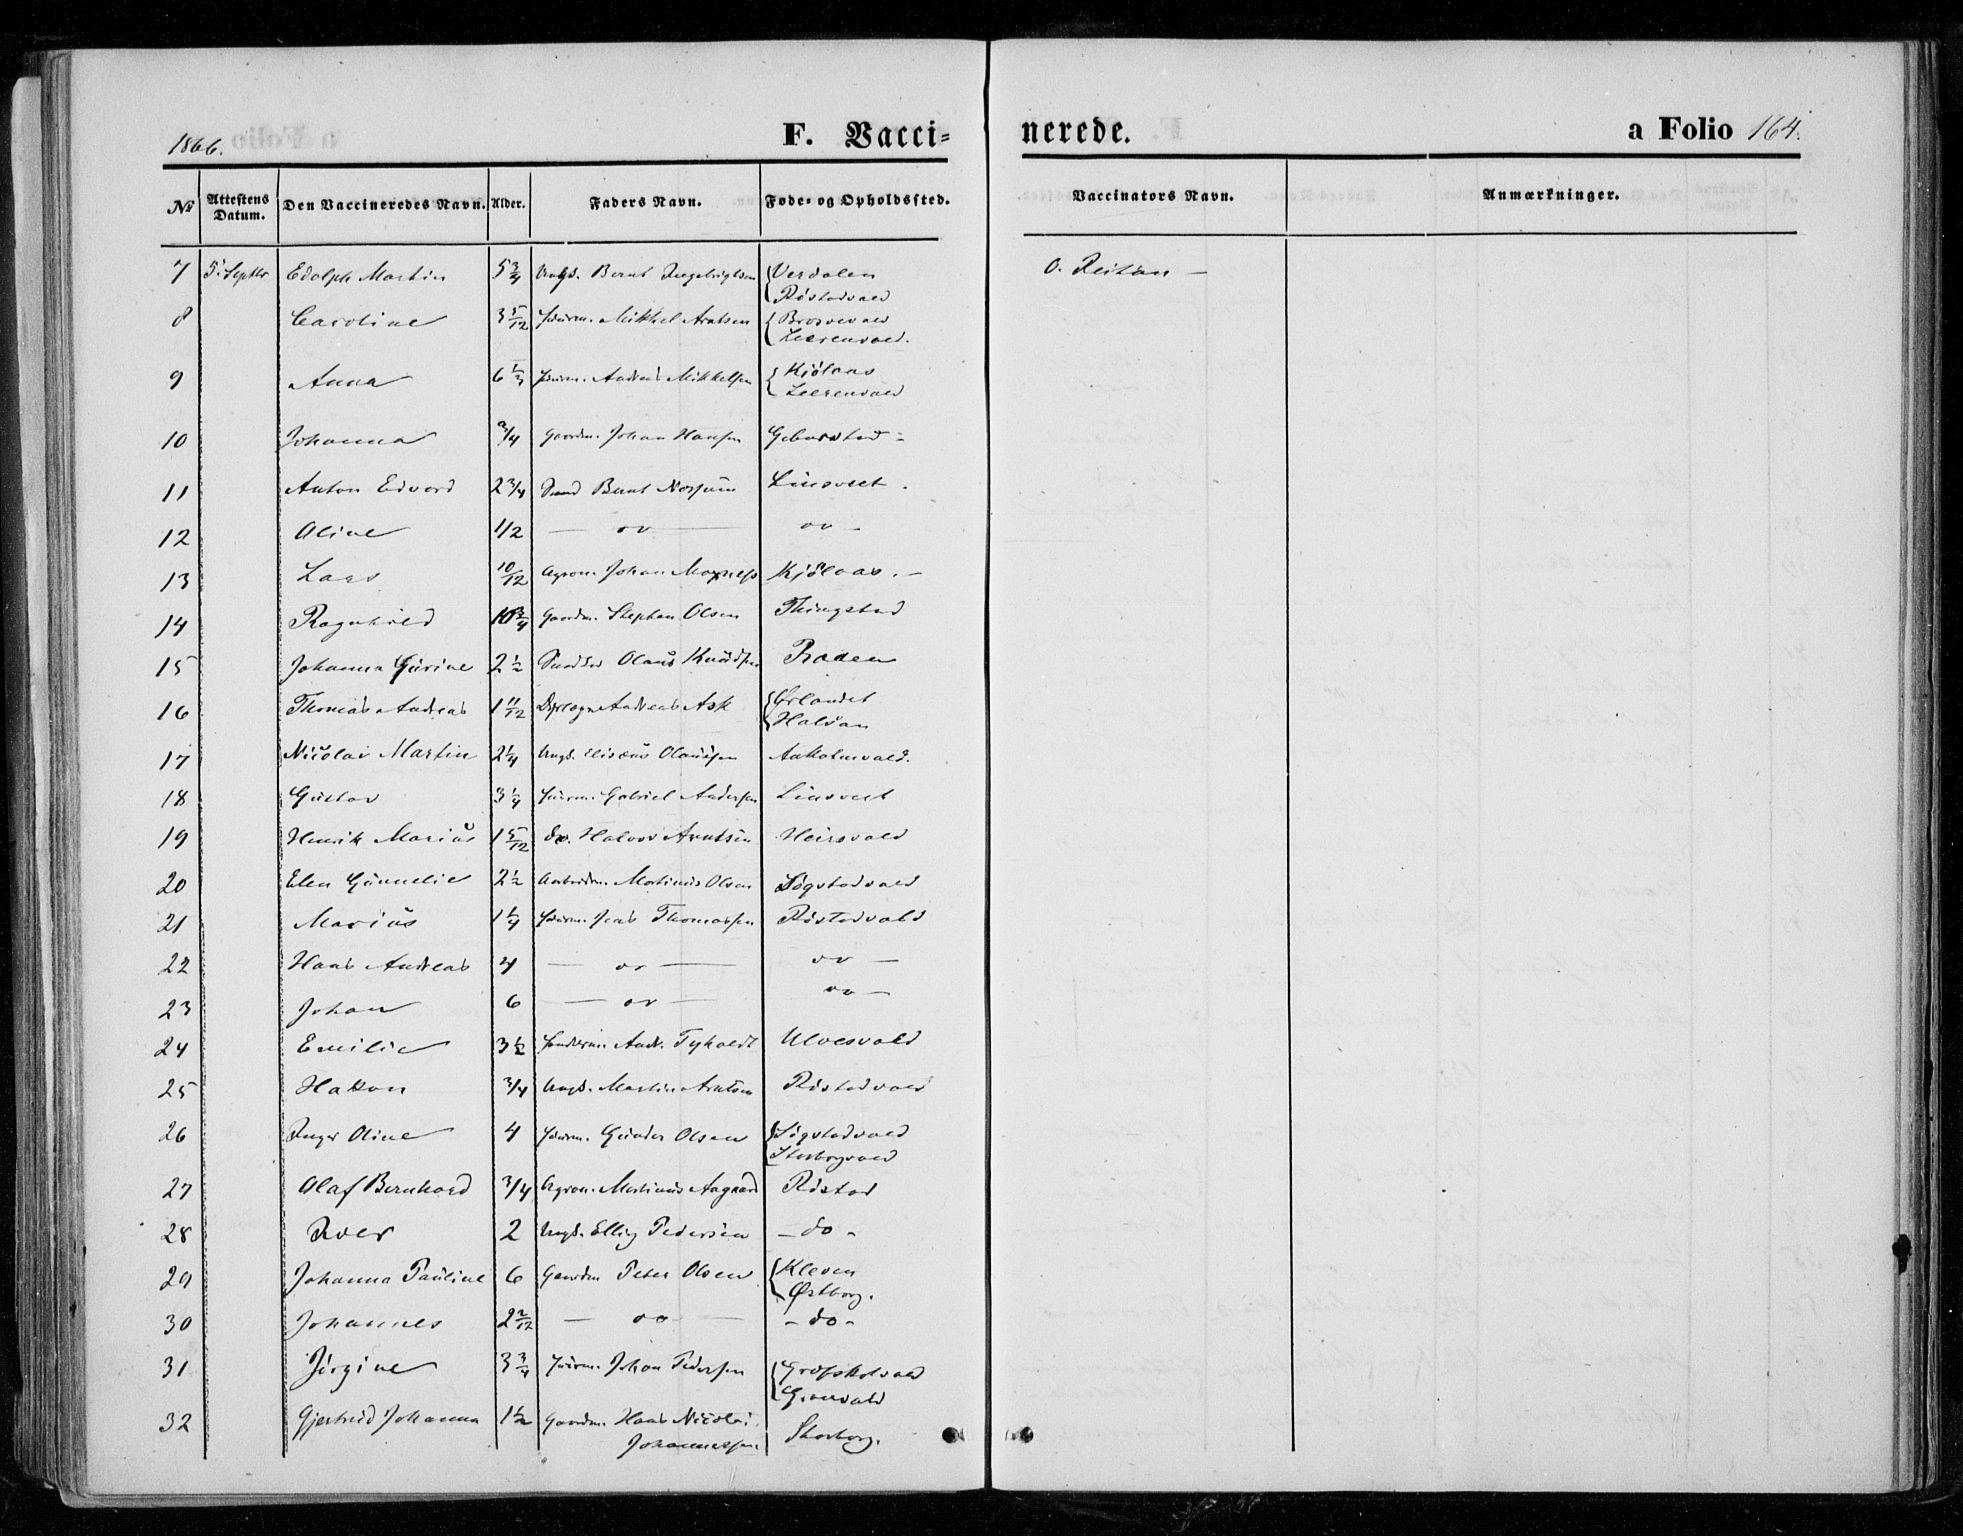 1866.
F. Vacci=
nerede.
a Folio 164.
No Attestens Datum. Den Vaccineredes Navn. Alder. Faders Navn. Føde= og Opholdssted. Vaccinators Navn. Anmærkninger.
7 5. Septbr Edolph Martin 5 3/4 Ungk. Bernt Ingebrigtsen {Verdalen O. Reitan —
Röstadvald
8 Caroline 3 5/12 Huusm. Mikkel Arntsen {
Leerenvald.
9 Anna 6 Huusm. Andreas Mikkelsen {Kjölaas
Leerenvald
10 Johanna 3/4 Gaardm. Johan Hansen Geborstad -
11 Anton Edvard 2 3/4 Bernt Linsveet .
12 Oline 1/2 — do — do —
13 Lars 10/12 Agron. Johan Kjölaas. —
14 Ragnhild 10 3/4 Gaardm. Stephan Olsen Thingstad
15 Johanna Gurine 2 1/2 Snedker Olaus Knudsen Braden
16 Thomas Andreas 1 11/12 Andreas Ask {Ørlandet
Halsan
17 Nicolai Martin 2 1/4 Ungk. Elisæus Olaussen Aakolmvald.
18 Gustav 3 1/4 Huusm. Gabriel Andersen Linsveet
19 Henrik Marius 1 5/12 do. Halvor Arntsen Heirsvald
20 Elen Gunnelie 2 1/2 Arbeidsm. Martinus Olsen Sögstadvald
21 Marius 1 1/4 Huusm. Jens Thomassen Röstadvald
22 Hans Andreas 4 — do — do —
23 Johan 6 — do — do —
24 Emilie 3 1/2 Andr. Tyholdt Ulvesvald
25 Hakon 3/4 Ungk. Martin Arntsen Röstadvald
26 Inger Oline 4 Huusm. Gunder Olsen {Sögstadvald
Storborgvald
27 Olaf Bernhard 3/4 Agron. Martinus Aagaard Röstad
28 Iver 2 Ungk. Elling Pedersen — do -
29 Johanna Pauline 6 Gaardm Peter Olsen {Kleven
Østborg.
30 Johannes 2 2/12 — do — - do -
31 Jörgine 3 3/4 Huusm. Johan Pedersen {Grofskotvald
Granvald
32 Gjertrud Johanna 1 1/2 Gaardm. Hans Nicolai
Johannessen Storborg.